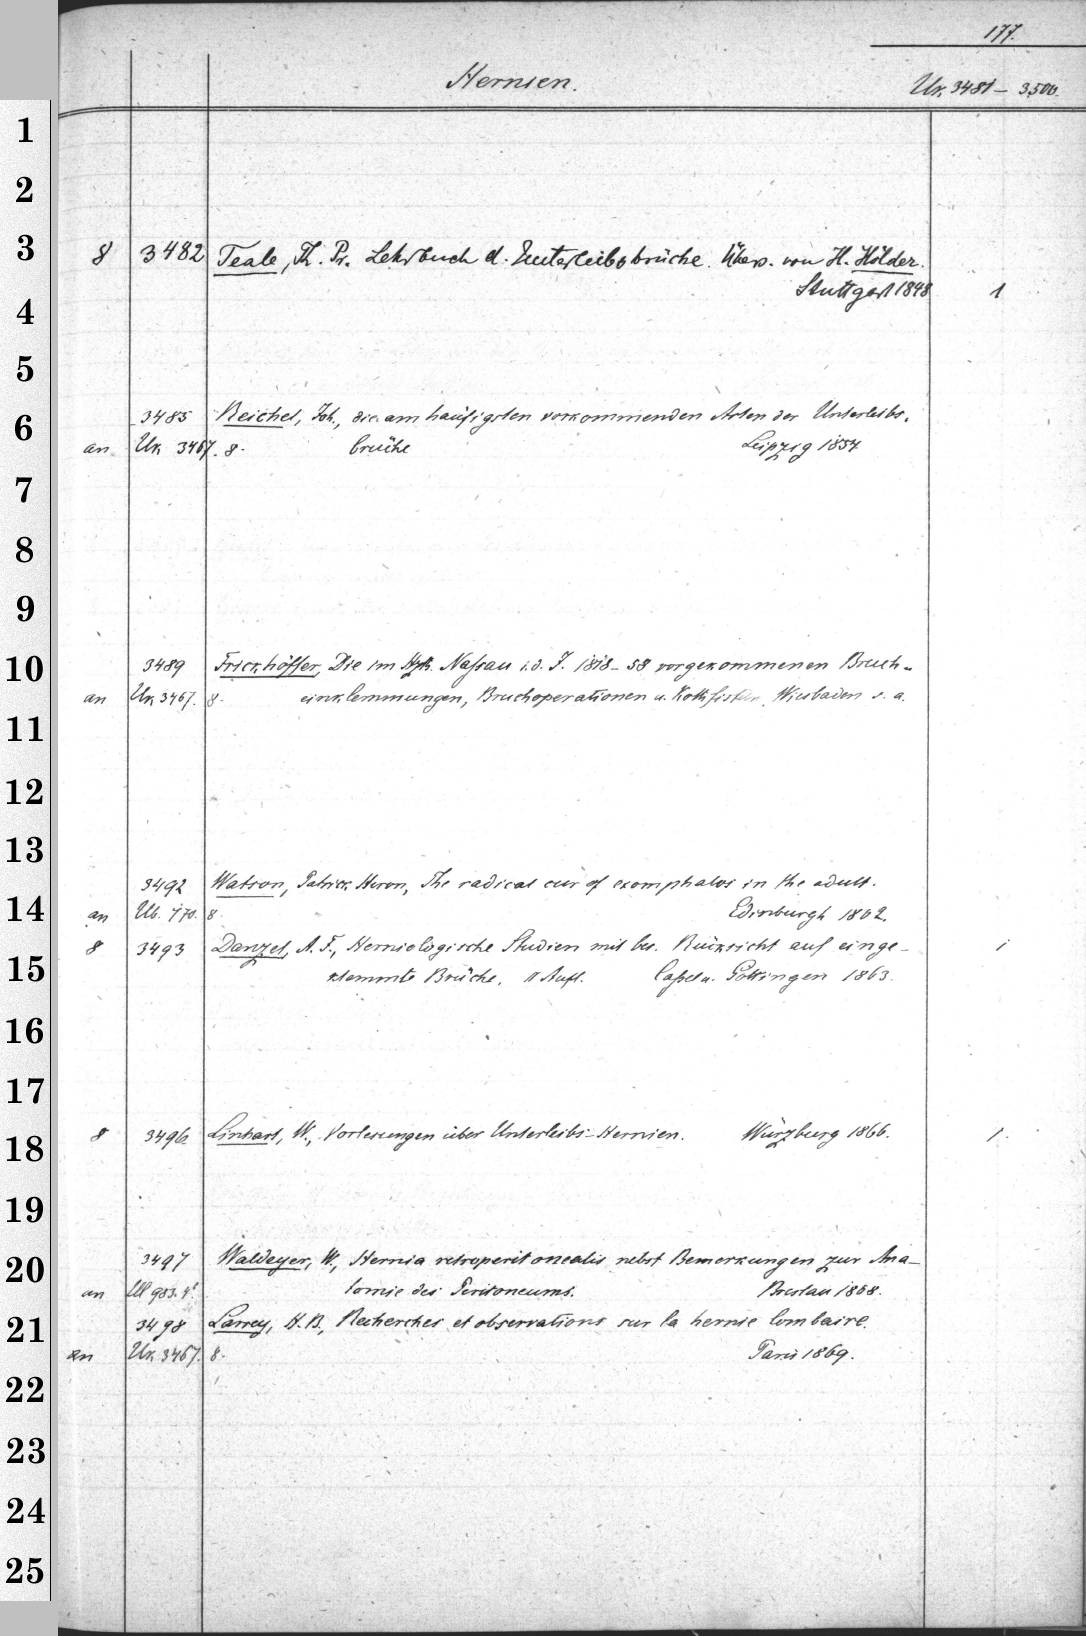 177.
Hernien.
Ur. 3481 - 3500.
1
2
3
8 3482 Teale, Th. Pr. Lehrbuch d. Unterleibsbrüche. Übers. von H. Hölder.
Stuttgart 1848 1
4
5
3485 Reichel, Joh., die am häufigsten vorkommenden Arten der Unterleibs-
6
an Ur. 3467. 8. brüche Leipzig 1854
7
8
9
3489 Frickhöffer, Die im Hzth. Naßau i. d. J. 1818-58 vorgekommenen Bruch-
10
an Ur. 3467. 8. einklemmungen, Bruchoperationen u. Kothfisteln. Wiesbaden s. a.
11
12
13
3492 Watson, Patrick Heron, The radical cur of exomphalos in the adult.
14
an Ub. 770. 8. Edinburgh 1862.
8 3493 Danzel, A. F., Herniologische Studien mit bes. Rücksicht auf einge- 1
15
klemmte Brüche. II Aufl. Caßel u. Göttingen 1863.
16
17
8 3496 Linhart, W., Vorlesungen über Unterleibs-Hernien. Würzburg 1866. 1
18
19
3497 Waldeyer, W., Hernia retroperitonealis nebst Bemerkungen zur Ana-
20
an Ul 983. 4° tomie des Peritoneums. Breslau 1868.
3498 Larrey, H. B., Recherches et observations sur la hernie lombaire.
21
an Ur. 3467. 8. Paris 1869.
22
23
24
25